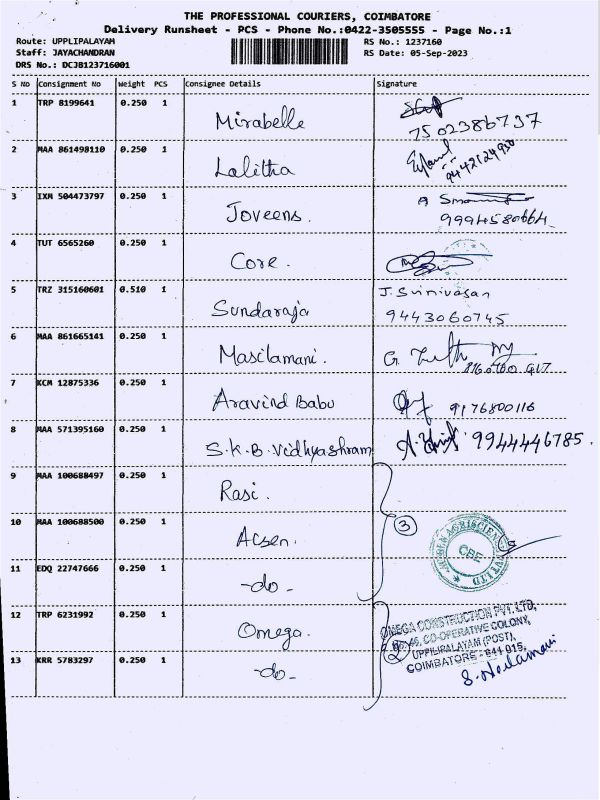 THE PROFESSIONAL COURIERS, COIMBATORE
Delivery Runsheet - PCS - Phone No.:0422-3505555 - Page No.:1
Route: UPPLIPALAYAM RS No.: 1237160
Staff: JAYACHANDRAN RS Date: 05-Sep-2023
DRS No.: DCJB123716001
S No Consignment No Weight PCS Consignee Details Signature
1 TRP 8199641 0.250 1 Mirabelle
7502386737
2 MAA 861498110 0.250 1 Lalitha
9442124930
3 IXM 504473797 0.250 1 Joveens.
9994580664
4 TUT 6565260 0.250 1 Core.
5 TRZ 315160601 0.510 1 Sundaraja J. Srinivasan
9443060745
6 MAA 861665141 0.250 1 Masilamani. G.
7 KCM 12875336 0.250 1 Aravind Babu 9176800116
8 MAA 571395160 0.250 1 S.K.B. Vidhyashram 9944446785.
9 MAA 100688497 0.250 1 Rasi.
10 MAA 100688500 0.250 1 Acsen. 3
AGRISCIENCE PVT LTD
CBE
11 EDQ 22747666 0.250 1 -do-
12 TRP 6231992 0.250 1 Omega. 2
OMEGA CONSTRUCTION PVT. LTD,
No: 46, CO-OPERATIVE COLONY,
UPPILIPALAYAM (POST),
COIMBATORE - 641 015.
13 KRR 5783297 0.250 1 -do-